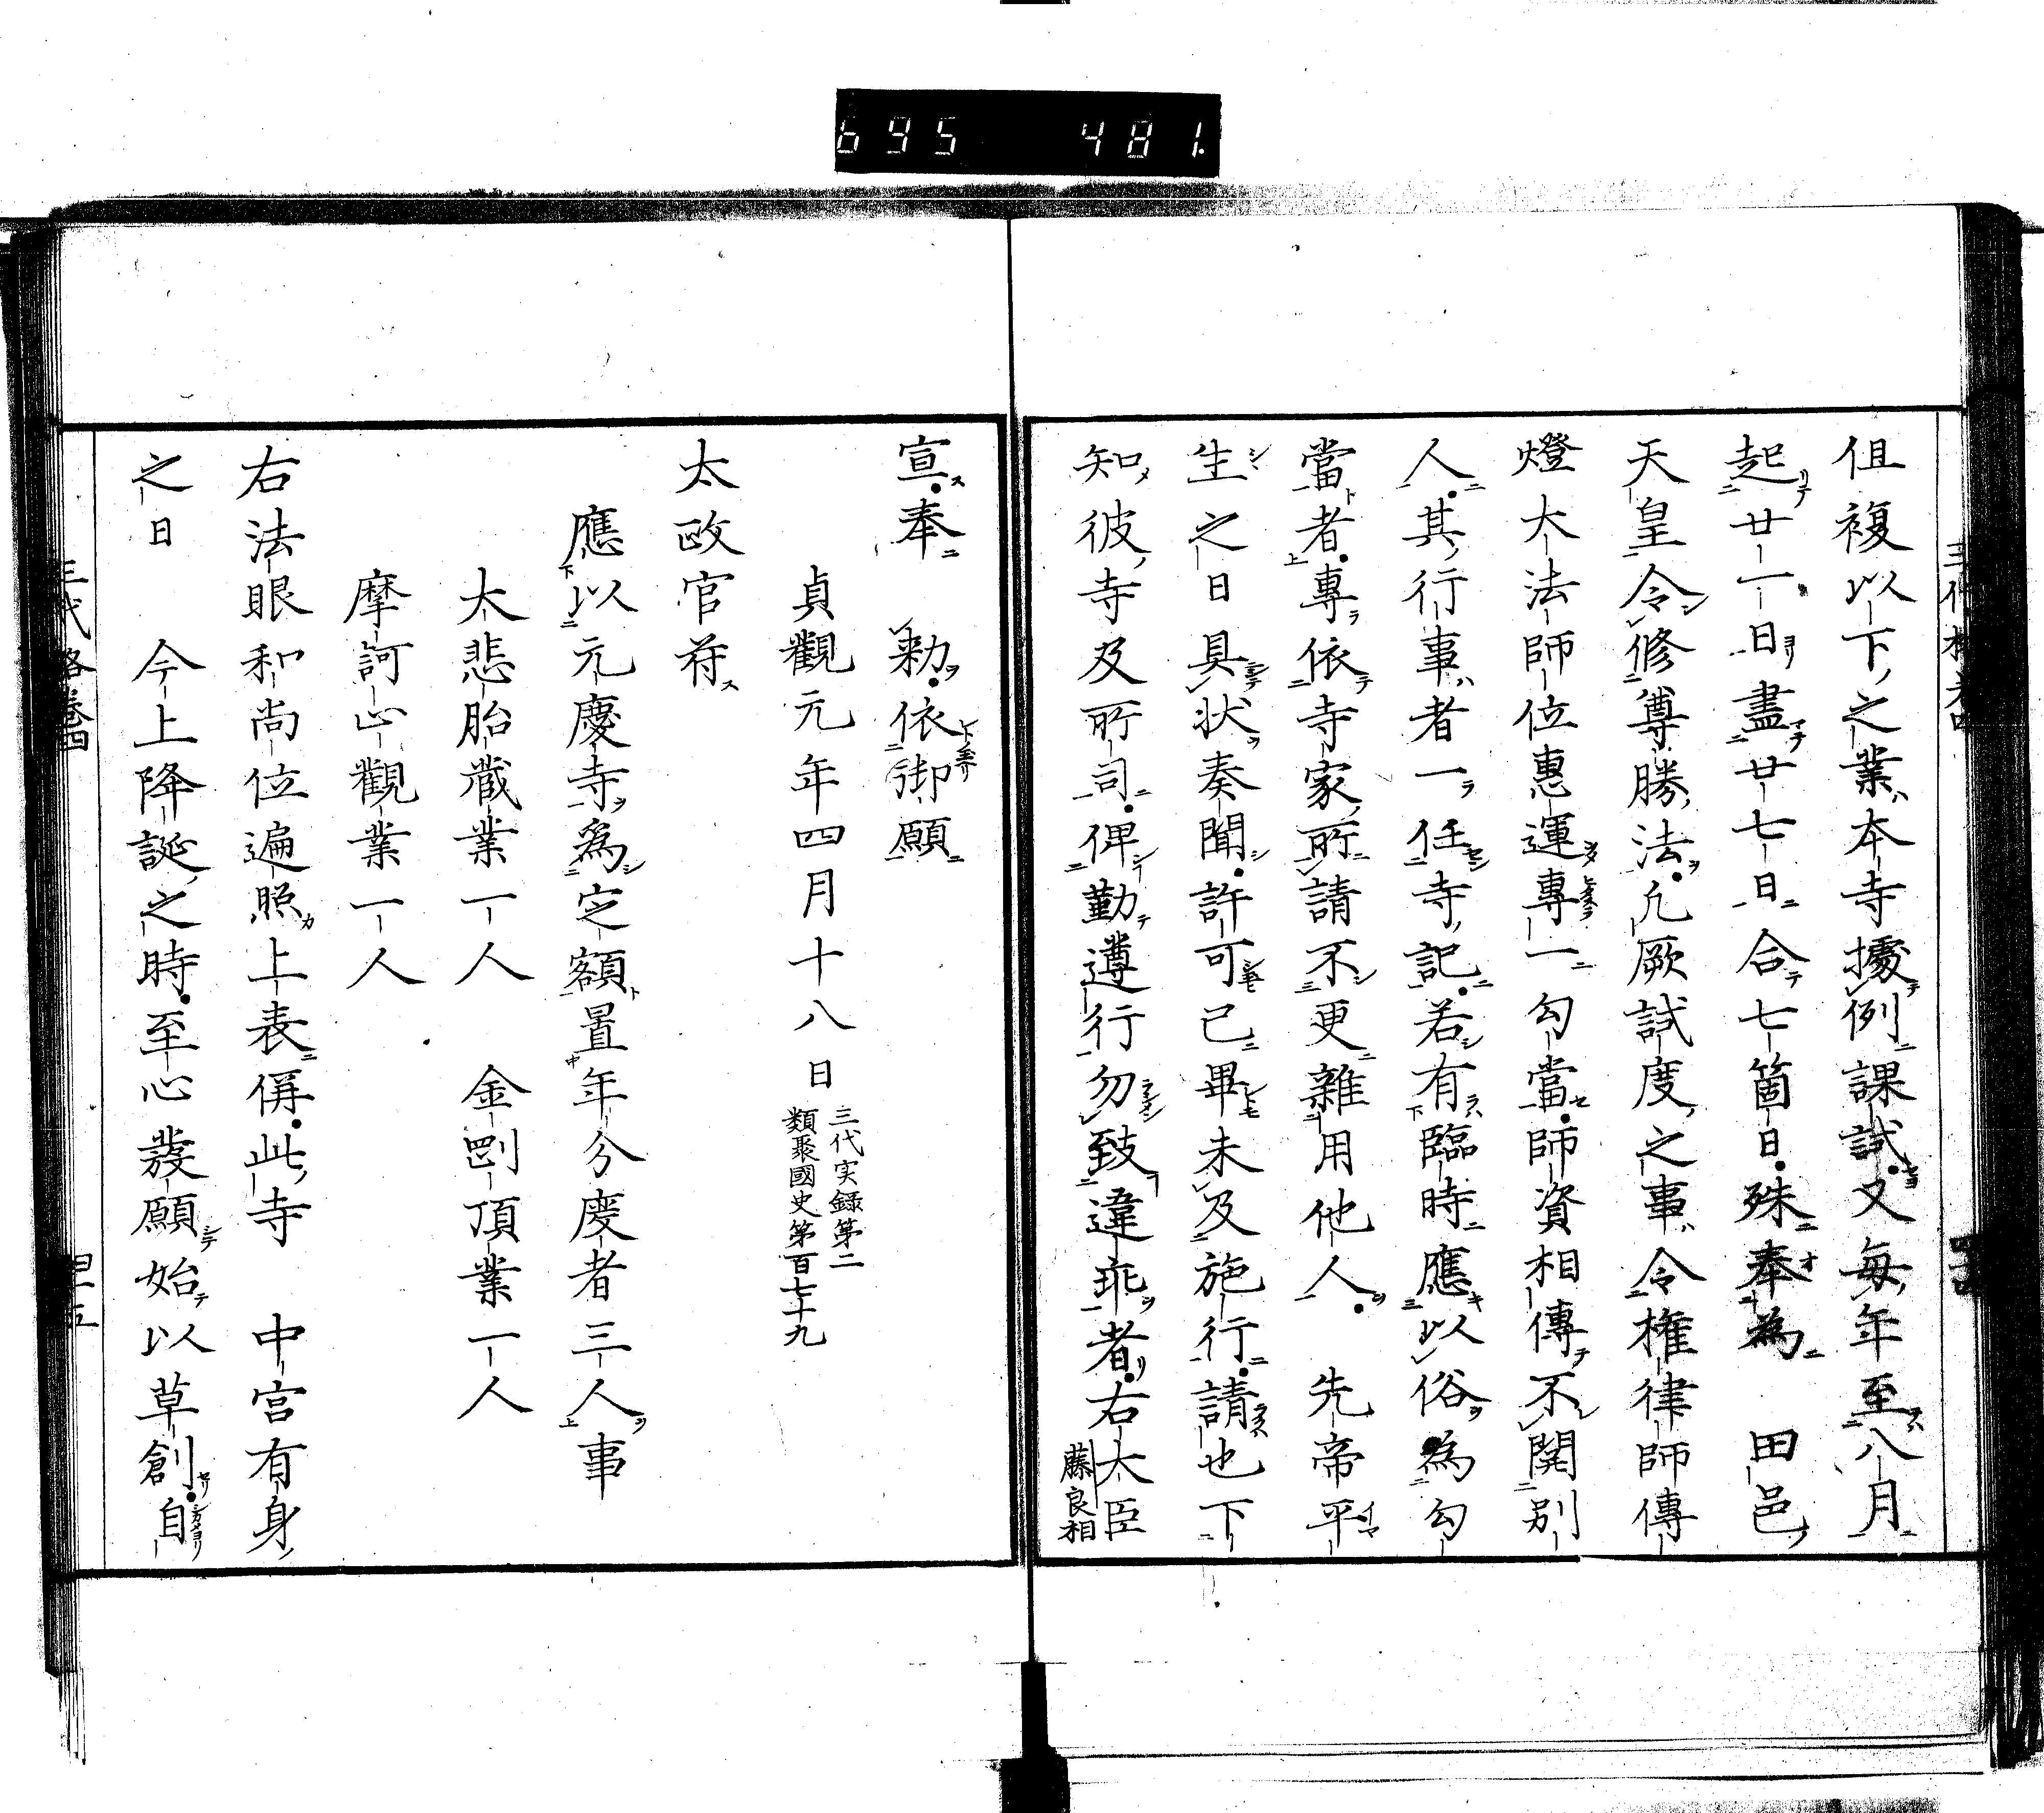 695 481
伹複以下之業本寺據例課試又每年至八月
起廿一日盡廿七日合七箇日殊奉為 田邑
天皇令修尊勝法凢厥試度之事令権律師傳
燈大法師位惠運專一勾當師資相傳不関別
人其行事者一任寺記若有臨時應以俗為勾
當者專依寺家所請不更雜用他人 先帝平
生之日具状奏聞許可已畢未及施行請也下
知彼寺及所司俾勤遵行勿致違乖者右大臣
藤良相
宣奉 勅依御願
貞觀元年四月十八日
三代実録第二
類聚國史第百七十九
太政官符
應以元慶寺為定額置年分度者三人事
大悲胎蔵業一人 金剛頂業一人
摩訶止觀業一人
右法眼和尚位遍照上表偁此寺 中宮有身
之日 今上降誕之時至心發願始以草創自
三代格巻四